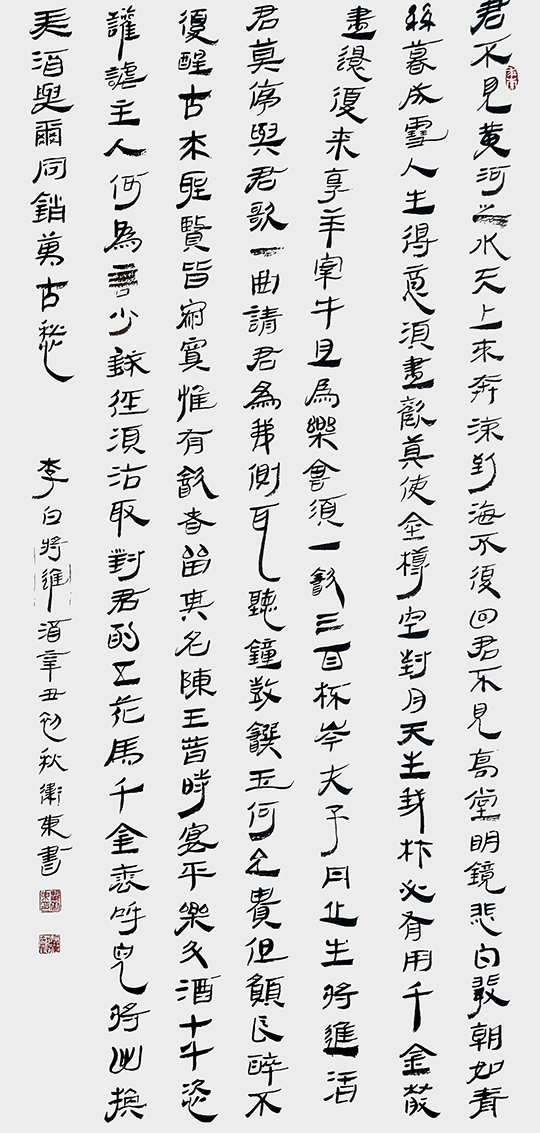 君不見黄河之水天上來奔流到海不復回君不見高堂明鏡悲白髮朝如青
絲暮成雪人生得意須盡歡莫使金樽空對月天生我材必有用千金散
盡還復来烹羊宰牛且為樂會須一飲三百杯岑夫子丹丘生將進酒
君莫停與君歌一曲請君為我側耳聽鐘鼓饌玉何足貴但願長醉不
復醒古来聖賢皆寂寞惟有飲者留其名陳王昔時宴平樂斗酒十千恣
讙謔主人何為言少錢徑須沽取對君酌五花馬千金裘呼兒將出換
美酒與爾同銷萬古愁
李白將進酒辛丑初秋衛東書